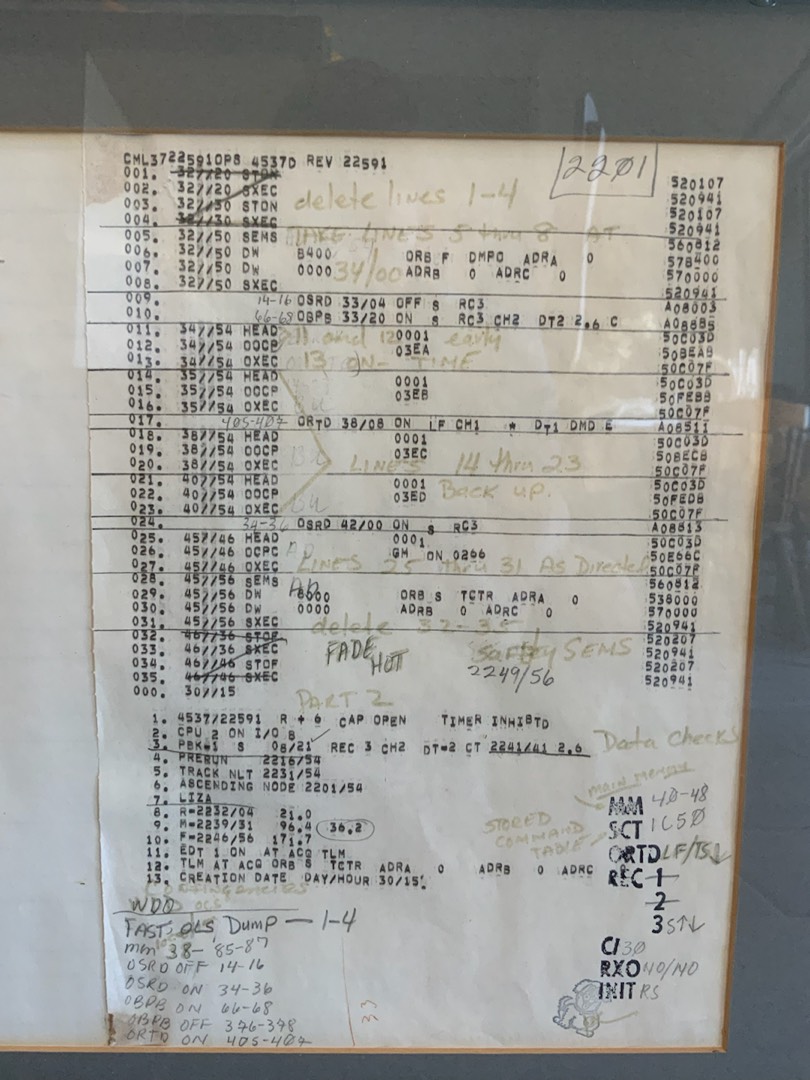 CML3722591OPS 4537D REV 22591
2201
001. 32//20 STON 520107
002. 32//20 SXEC 520941
delete lines 1-4
003. 32//30 STON 520107
004. 32//30 SXEC 520941
TAKE LINES 5 thru 8 AT
005. 32//50 SEMS 560812
006. 32//50 DW 8400 ORB F DMPO ADRA 0 578400
007. 32//50 DW 0000 ADRB 0 ADRC 0 570000
34/00
008. 32//50 SXEC 520941
009. 14-16 OSRD 33/04 OFF S RC3 A08003
010. 66-68 OBPB 33/20 ON S RC3 CH2 DT2 2.6 C A088B5
11 and 12 early
011. 34//54 HEAD 0001 50C03D
012. 34//54 OOCP 03EA 508EA9
013. 34//54 OXEC 50C07F
13 ON-TIME
014. 35//54 HEAD 0001 50C03D
015. 35//54 OOCP 03EB 50FEB9
016. 35//54 OXEC 50C07F
017. 405-407 ORTD 38/08 ON LF CH1 * DT1 DMD E A08511
018. 38//54 HEAD 0001 50C03D
019. 38//54 OOCP 03EC 508EC8
020. 38//54 OXEC 50C07F
LINES 14 thru 23
021. 40//54 HEAD 0001 50C03D
022. 40//54 OOCP 03ED 50FED8
Back up.
023. 40//54 OXEC 50C07F
024. 34-36 OSRD 42/00 ON S RC3 A08813
025. 45//46 HEAD 0001 50C03D
026. 45//46 OCPC GM ON 0266 50E66C
027. 45//46 OXEC 50C07F
LINES 25 thru 31 As Directed
028. 45//56 SEMS 560812
029. 45//56 DW ORB S TCTR ADRA 0 538000
030. 45//56 DW 0000 ADRB 0 ADRC 0 570000
031. 45//56 SXEC 520941
delete 32-35
032. 46//36 STOF 520207
033. 46//36 SXEC 520941
FADE HOT
Safety SEMS
034. 46//46 STOF 520207
2249/56
035. 46//46 SXEC 520941
000. 30//15
PART 2
1. 4537/22591 R + 6 CAP OPEN TIMER INHIBTD
2. CPU 2 ON I/O B
3. PBK=1 S 08/21 REC 3 CH2 DT=2 CT 2241/41 2.6
Data Checks
4. PRERUN 2216/54
5. TRACK NLT 2231/54
6. ASCENDING NODE 2201/54
7. LIZA
8. R=2232/04 21.0
9. M=2239/31 96.4 36.2
10. F=2246/56 171.7
11. EDT 1 ON AT ACQ TLM
12. TLM AT ACQ ORB S TCTR ADRA 0 ADRB 0 ADRC
13. CREATION DATE DAY/HOUR 30/15
MAIN MEMORY
MM 40-48
STORED COMMAND TABLE
SCT 1C50
ORTD LF/TS↓
REC 1
2
3 S↑↓
C/ 30
RXO NO/NO
INIT RS
WDO
FAST OLS DUMP — 1-4
mm 38-'85-87
OSRD OFF 14-16
OSRD ON 34-36
OBPB ON 66-68
OBPB OFF 376-378
ORTD ON 405-407
33